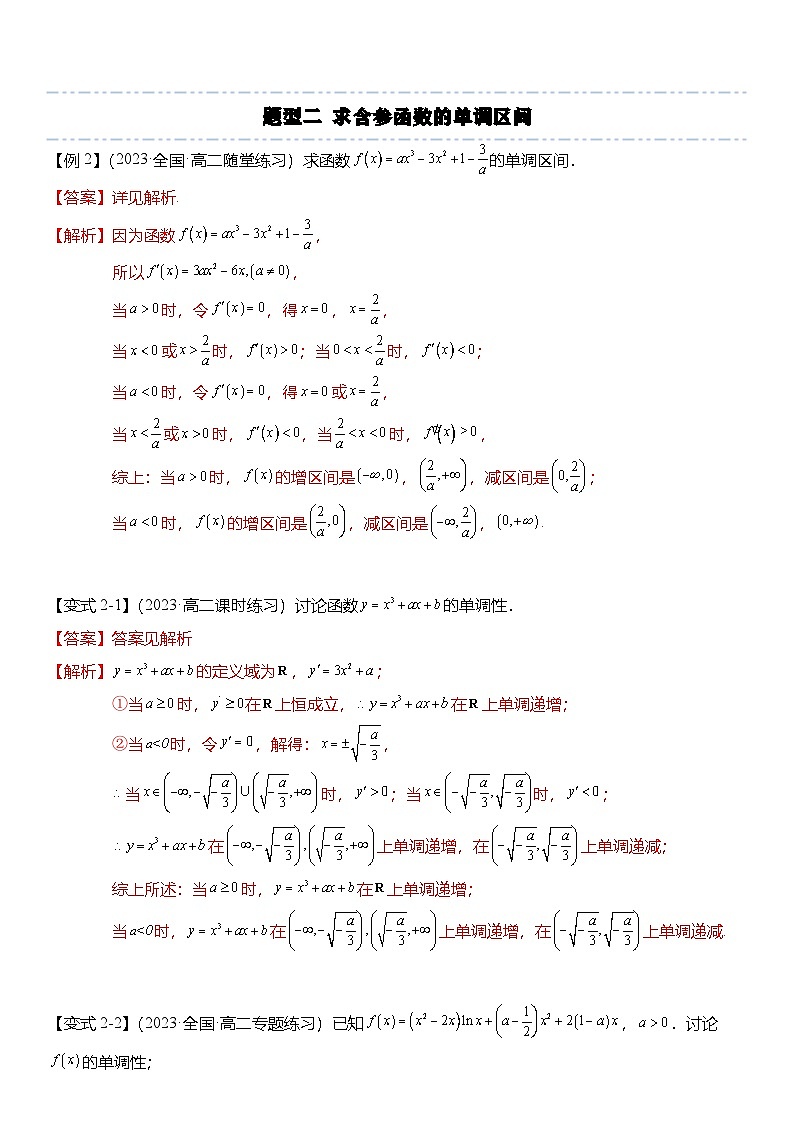 题型二 求含参函数的单调区间
【例2】(2023·全国·高二随堂练习)求函数 f(x)=ax³-3x²+1-3/a 的单调区间.
【答案】详见解析.
【解析】因为函数 f(x)=ax³-3x²+1-3/a,
所以 f′(x)=3ax²-6x,(a≠0),
当 a>0 时,令 f′(x)=0,得 x=0,x=2/a,
当 x<0 或 x>2/a 时,f′(x)>0;当 0<x<2/a 时,f′(x)<0;
当 a<0 时,令 f′(x)=0,得 x=0 或 x=2/a,
当 x<2/a 或 x>0 时,f′(x)<0,当 2/a<x<0 时,f′(x)>0,
综上:当 a>0 时,f(x) 的增区间是 (-∞,0),(2/a,+∞),减区间是 (0,2/a);
当 a<0 时,f(x) 的增区间是 (2/a,0),减区间是 (-∞,2/a),(0,+∞).
【变式2-1】(2023·高二课时练习)讨论函数 y=x³+ax+b 的单调性.
【答案】答案见解析
【解析】y=x³+ax+b 的定义域为 R,y′=3x²+a;
①当 a≥0 时,y′≥0 在 R 上恒成立,∴y=x³+ax+b 在 R 上单调递增;
②当 a<0 时,令 y′=0,解得:x=±√(-a/3),
∴当 x∈(-∞,-√(-a/3))∪(√(-a/3),+∞) 时,y′>0;当 x∈(-√(-a/3),√(-a/3)) 时,y′<0;
∴y=x³+ax+b 在 (-∞,-√(-a/3)),(√(-a/3),+∞) 上单调递增,在 (-√(-a/3),√(-a/3)) 上单调递减;
综上所述:当 a≥0 时,y=x³+ax+b 在 R 上单调递增;
当 a<0 时,y=x³+ax+b 在 (-∞,-√(-a/3)),(√(-a/3),+∞) 上单调递增,在 (-√(-a/3),√(-a/3)) 上单调递减.
【变式2-2】(2023·全国·高二专题练习)已知 f(x)=(x²-2x)lnx+(a-1/2)x²+2(1-a)x,a>0.讨论
f(x) 的单调性;